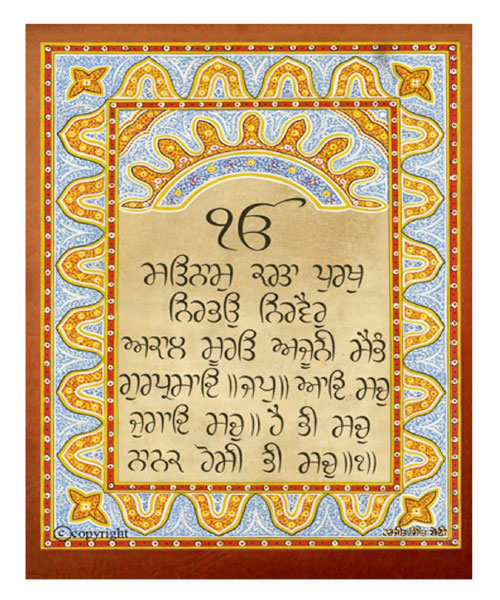 ੴ
ਸਤਿਨਾਮੁ ਕਰਤਾ ਪੁਰਖੁ
ਨਿਰਭਉ ਨਿਰਵੈਰੁ
ਅਕਾਲ ਮੂਰਤਿ ਅਜੂਨੀ ਸੈਭੰ
ਗੁਰਪ੍ਰਸਾਦਿ ॥ਜਪੁ॥ ਆਦਿ ਸਚੁ
ਜੁਗਾਦਿ ਸਚੁ॥ ਹੈ ਭੀ ਸਚੁ
ਨਾਨਕ ਹੋਸੀ ਭੀ ਸਚੁ॥੧॥
©copyright